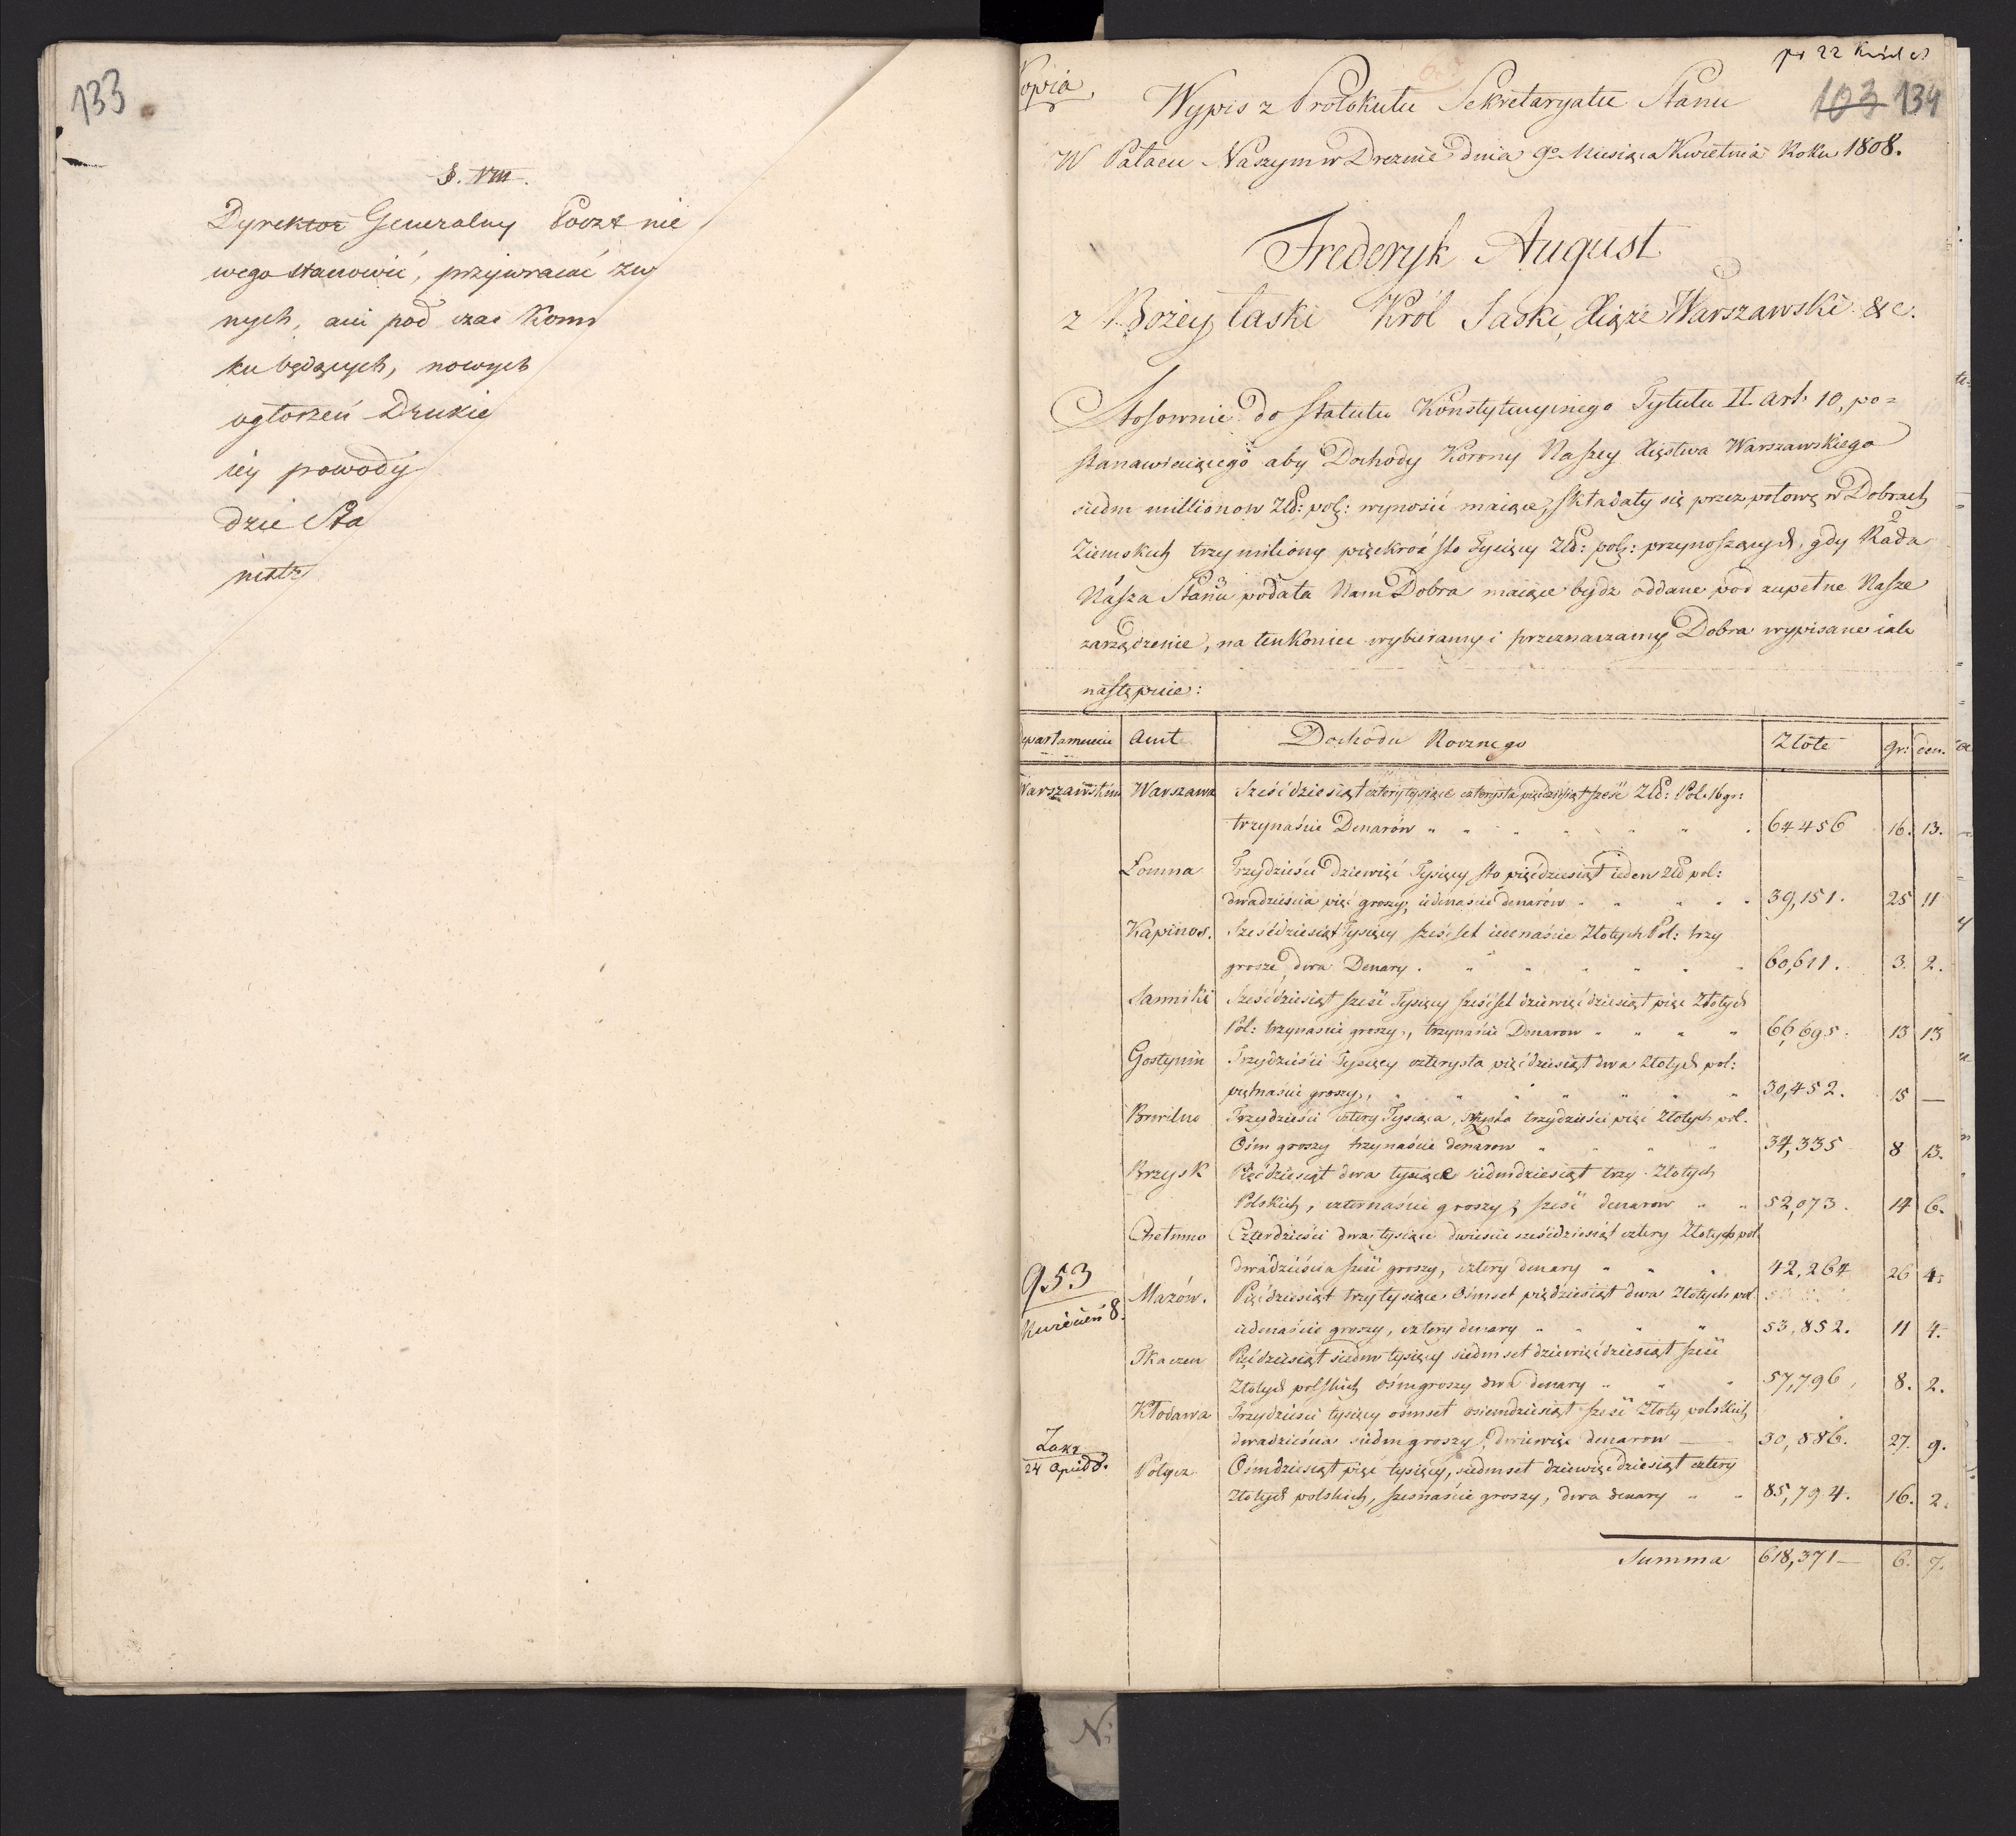 133
§. VIII.
Dyrektor Generalny Poczt nie
wego stanowić, przywracać zw
nych, ani pod czas Kom
ku będących, nowych
ogłoszeń Drukie
iey powody
dzie Sta
nistr
Kopia
103 134
Wypis z Protokułu Sekretaryatu Stanu
W Pałacu Naszym w Dreznie dnia 9o Miesiąca Kwietnia Roku 1808.
Frederyk August
z Bożey łaski Król Saski, Xiąże Warszawski &c.
Stosownie do Statutu Konstytucyinego Tytułu II. Art. 10, po=
stanawiaiącego aby Dochody Korony Naszey Xięstwa Warszawskiego
siedm millionow Złł: pol: wynosić maiące, składały się przez połowę w Dobrach
Ziemskich trzy miliony pięćkroć sto Tysięcy Złł: pol: przynoszących, gdy Rada
Nasza Stanu podała Nam Dobra maiące bydz oddane pod zupełne Nasze
zarządzenie, na ten koniec wybieramy i przeznaczamy Dobra wypisane iak
następuie:
Departamencie Amt Dochodu Rocznego Złote gr: den.
Warszawskim Warszawa Sześćdziesiąt cztery tysiące czterysta pięćdziesiąt sześć Złł: Pol. 16 gr:
trzynaście Denarów 64456 16. 13.
Łomna Trzydzieści dziewięć Tysięcy sto pięćdziesiąt ieden Złł pol:
dwadzieścia pięć groszy, iedenaście denarów 39,151. 25 11
Kapinos. Sześćdziesiąt Tysięcy sześćset iedenaście Złotych Pol: trzy
grosze dwa Denary. 60,611. 3. 2.
Sanniki Sześćdziesiąt sześć Tysięcy sześćset dziewięćdziesiąt pięć Złotych
Pol: trzynaście groszy, trzynaście Denarow 66,695. 13 13
Gostynin Trzydzieści Tysięcy czterysta pięćdziesiąt dwa Złotych pol:
piętnaście groszy, 30,452. 15 —
Brwilno Trzydzieści cztery Tysiąca, trzysta trzydzieści pięć Złotych pol.
Ośm groszy trzynaście denarow 34,335 8 13.
Brzysk Pięćdziesiąt dwa tysiące siedmdziesiąt trzy Złotych
Polskich, czternaście groszy, sześć denarow 52,073. 14 6.
Chełmno Czterdzieści dwa tysiące dwieście sześćdziesiąt cztery Złotych pol.
dwadzieścia sześć groszy, cztery denary 42,264 26 4.
953
Kwiecień 8.
Mazów. Pięćdziesiąt trzy tysiące Ośmset pięćdziesiąt dwa Złotych pol
iedenaście groszy, cztery denary 53,852. 11 4.
Tkaczew Pięćdziesiąt siedm tysięcy siedmset dziewięćdziesiąt sześć
Złotych polskich ośm groszy dwa denary 57,796, 8. 2.
Kłodawa Trzydzieści tysięcy ośmset osiemdziesiąt sześć Złoty polskich
dwadzieścia siedm groszy, dziewięć denarow 30,886. 27. 9.
24 8.
Ośmdziesiąt pięć tysięcy, siedmset dziewięćdziesiąt cztery
Złotych polskich, szesnaście groszy, dwa denary 85,794. 16. 2.
Summa 618,371— 6. 7.